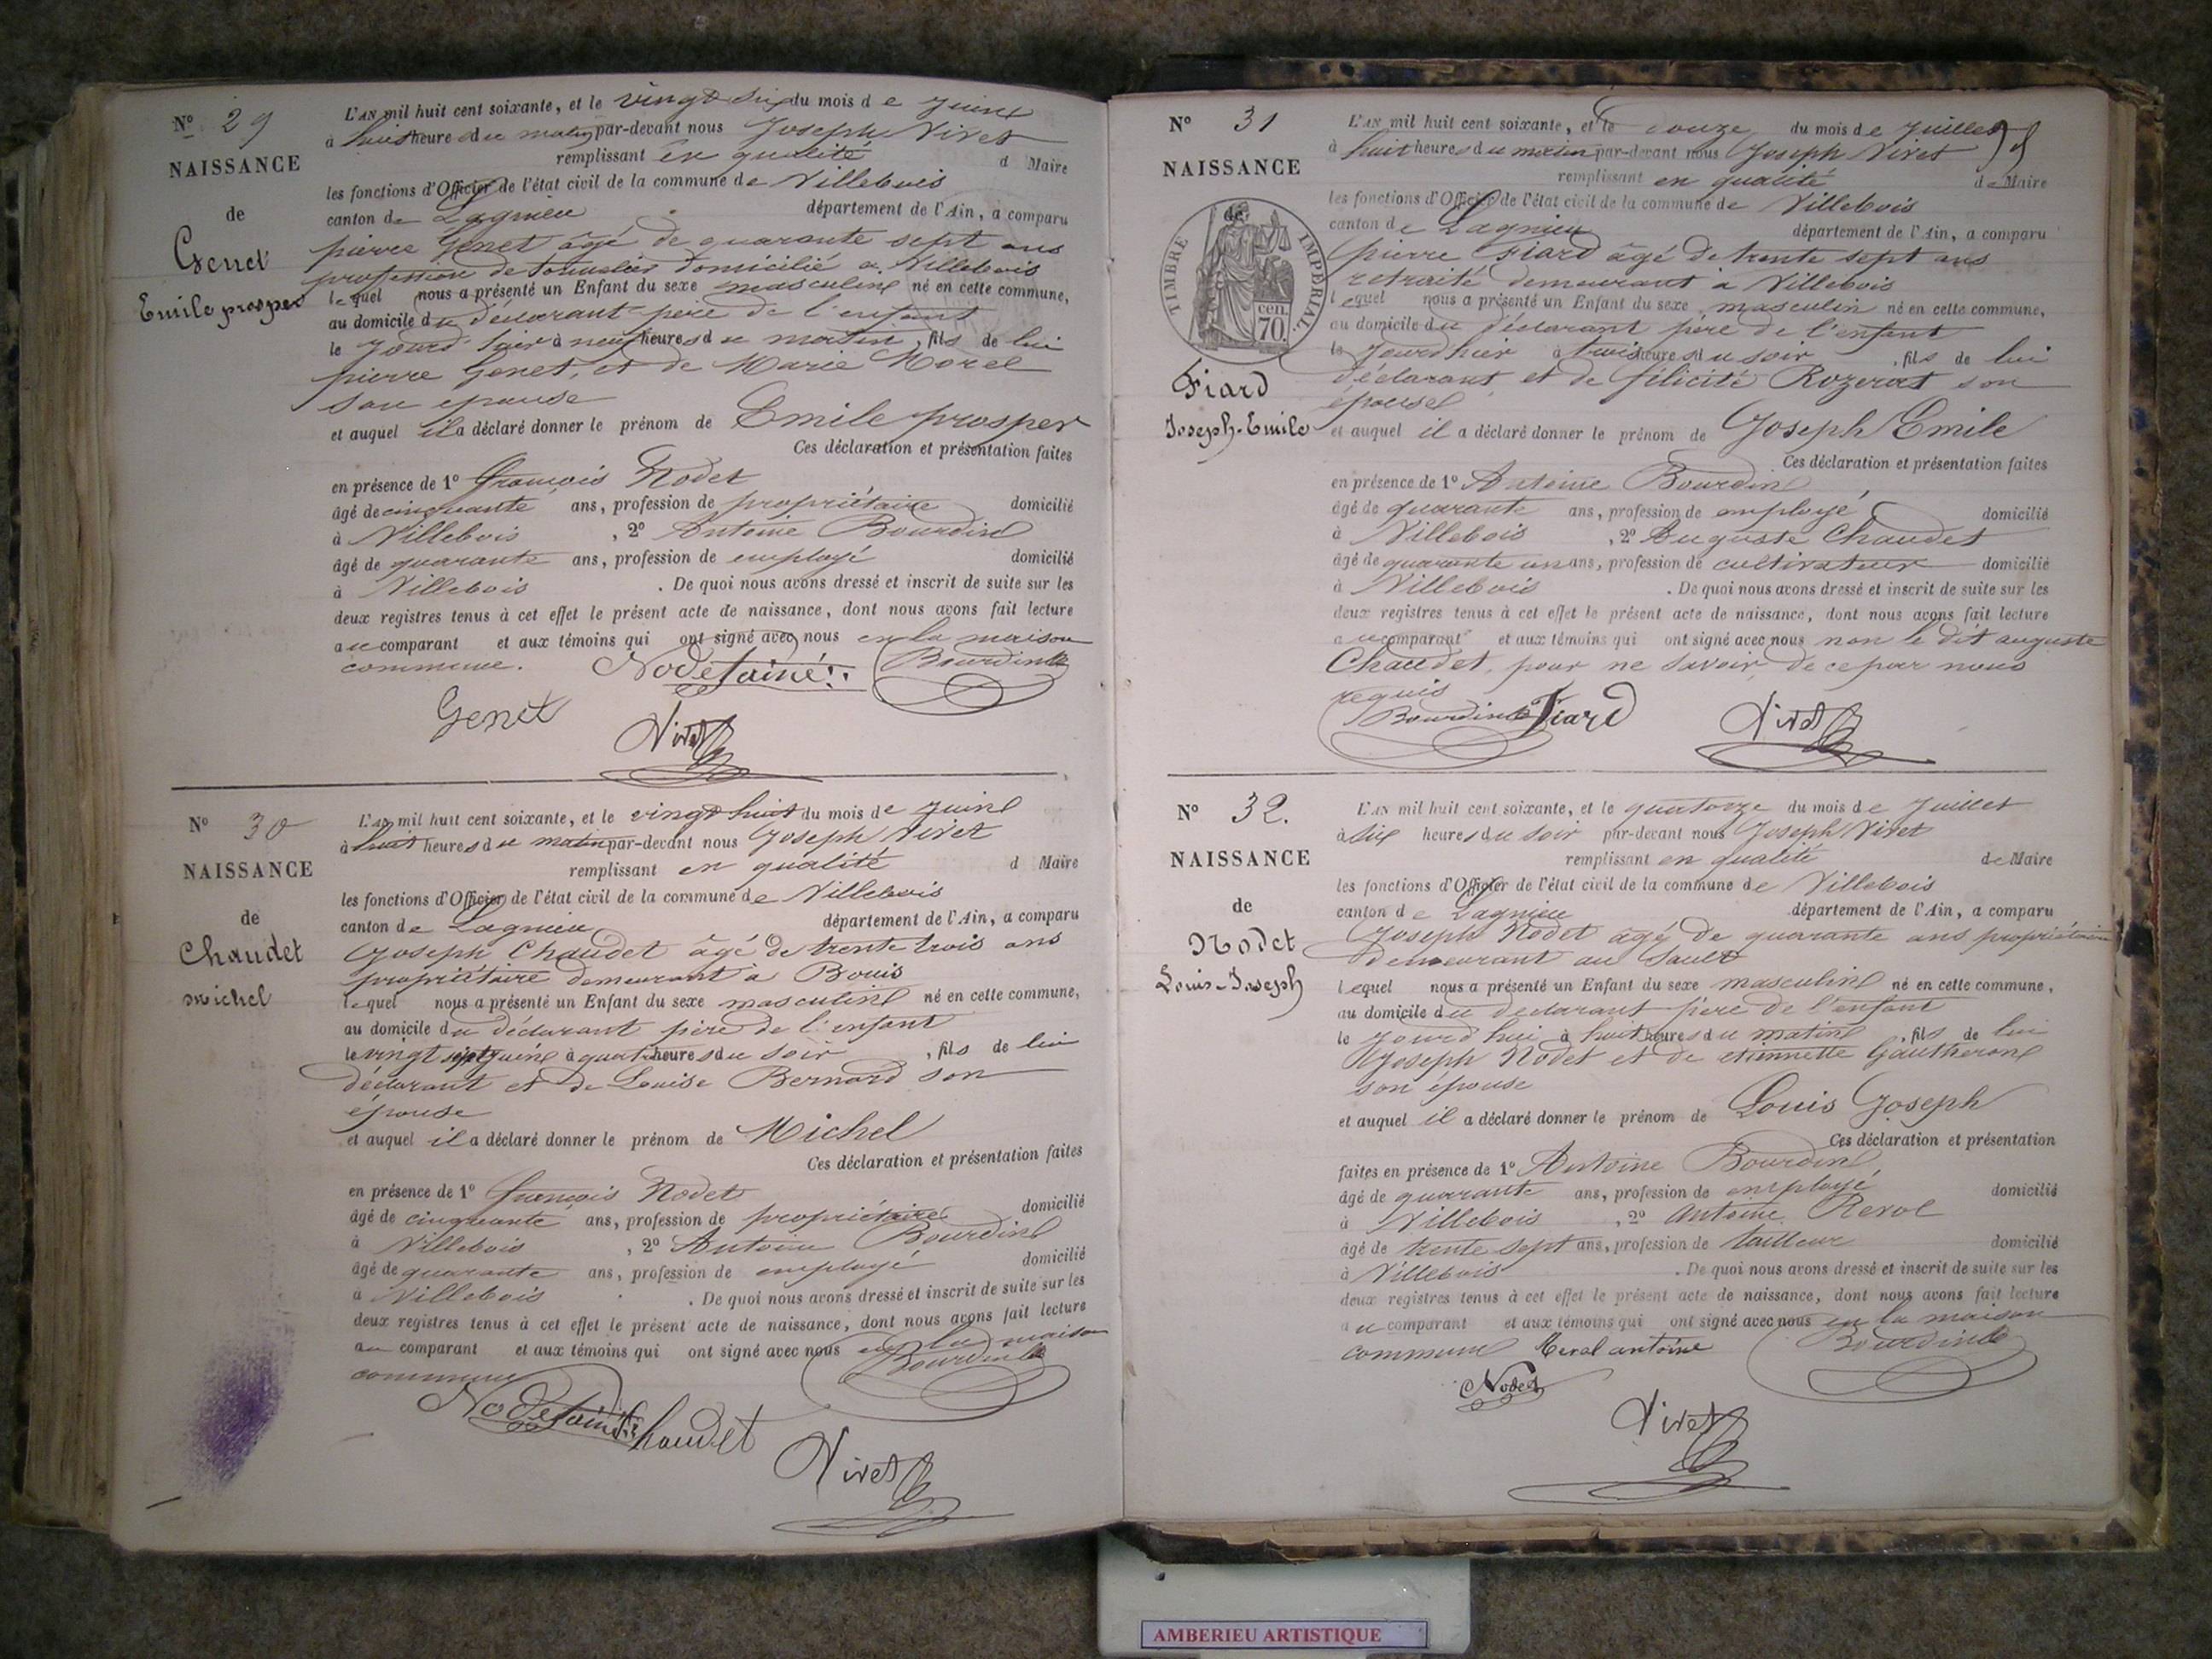 Nº 29
NAISSANCE
de
Genet
Emile prosper
L'AN mil huit cent soixante, et le vingt six du mois de Juin
à huit heures du matin par-devant nous Joseph Vivet
remplissant en qualité d Maire
les fonctions d'Officier de l'état civil de la commune de Villebois
canton de Lagnieu département de l'Ain, a comparu
pierre Genet âgé de quarante sept ans
profession de tonnelier domicilié à Villebois
lequel nous a présenté un Enfant du sexe masculin né en cette commune,
au domicile du déclarant père de l'enfant
le jourd'hier à neuf heures du matin, fils de lui
pierre Genet, et de Marie Morel
son epouse
et auquel il a déclaré donner le prénom de Emile prosper
Ces déclaration et présentation faites
en présence de 1º françois Nodet
âgé de cinquante ans, profession de propriétaire domicilié
à Villebois, 2º Antoine Bourdin
âgé de quarante ans, profession de employé domicilié
à Villebois. De quoi nous avons dressé et inscrit de suite sur les
deux registres tenus à cet effet le présent acte de naissance, dont nous avons fait lecture
au comparant et aux témoins qui ont signé avec nous en la maison
commune. Nodet ainé Bourdin
Genet
Vivet
Nº 30
NAISSANCE
de
Chaudet
michel
L'AN mil huit cent soixante, et le vingt huit du mois de Juin
à huit heures du matin par-devant nous Joseph Vivet
remplissant en qualité d Maire
les fonctions d'Officier de l'état civil de la commune de Villebois
canton de Lagnieu département de l'Ain, a comparu
Joseph Chaudet âgé de trente trois ans
propriétaire demeurant à Bouis
lequel nous a présenté un Enfant du sexe masculin né en cette commune,
au domicile du déclarant père de l'enfant
le vingt sept juin à quatre heures du soir, fils de lui
déclarant et de Louise Bernard son
épouse
et auquel il a déclaré donner le prénom de Michel
Ces déclaration et présentation faites
en présence de 1º françois Nodet
âgé de cinquante ans, profession de propriétaire domicilié
à Villebois, 2º Antoine Bourdin
âgé de quarante ans, profession de employé domicilié
à Villebois. De quoi nous avons dressé et inscrit de suite sur les
deux registres tenus à cet effet le présent acte de naissance, dont nous avons fait lecture
au comparant et aux témoins qui ont signé avec nous en la maison
commune Bourdin
Nodet ainé Chaudet
Vivet
Nº 31
NAISSANCE
de
TIMBRE IMPÉRIAL
cen.
70.
Fiard
Joseph-Emile
L'AN mil huit cent soixante, et le douze du mois de Juillet
à huit heures du matin par-devant nous Joseph Vivet
remplissant en qualité de Maire
les fonctions d'Officier de l'état civil de la commune de Villebois
canton de Lagnieu département de l'Ain, a comparu
pierre Fiard âgé de trente sept ans
retraité demeurant à Villebois
lequel nous a présenté un Enfant du sexe masculin né en cette commune,
au domicile du déclarant père de l'enfant
le jourdhier à trois heures du soir, fils de lui
déclarant et de félicité Rozerat son
épouse
et auquel il a déclaré donner le prénom de Joseph Emile
Ces déclaration et présentation faites
en présence de 1º Antoine Bourdin
âgé de quarante ans, profession de employé domicilié
à Villebois, 2º Auguste Chaudet
âgé de quarante un ans, profession de cultivateur domicilié
à Villebois. De quoi nous avons dressé et inscrit de suite sur les
deux registres tenus à cet effet le présent acte de naissance, dont nous avons fait lecture
au comparant et aux témoins qui ont signé avec nous non le dit auguste
Chaudet, pour ne savoir, de ce par nous
requis
Bourdin Fiard Vivet
Nº 32.
NAISSANCE
de
Nodet
Louis-Joseph
L'AN mil huit cent soixante, et le quatorze du mois de Juillet
à six heures du soir par-devant nous Joseph Vivet
remplissant en qualité de Maire
les fonctions d'Officier de l'état civil de la commune de Villebois
canton de Lagnieu département de l'Ain, a comparu
Joseph Nodet âgé de quarante ans propriétaire
demeurant au Sault
lequel nous a présenté un Enfant du sexe masculin né en cette commune,
au domicile du declarant père de l'enfant
le jourd'hui à huit heures du matin, fils de lui
Joseph Nodet et de etiennette Gautheron
son épouse
et auquel il a déclaré donner le prénom de Louis Joseph
Ces déclaration et présentation
faites en présence de 1º Antoine Bourdin
âgé de quarante ans, profession de employé domicilié
à Villebois, 2º Antoine Revol
âgé de trente sept ans, profession de tailleur domicilié
à Villebois. De quoi nous avons dressé et inscrit de suite sur les
deux registres tenus à cet effet le présent acte de naissance, dont nous avons fait lecture
au comparant et aux témoins qui ont signé avec nous en la maison
commune Reval antoine Bourdin
Nodet
Vivet
AMBERIEU ARTISTIQUE